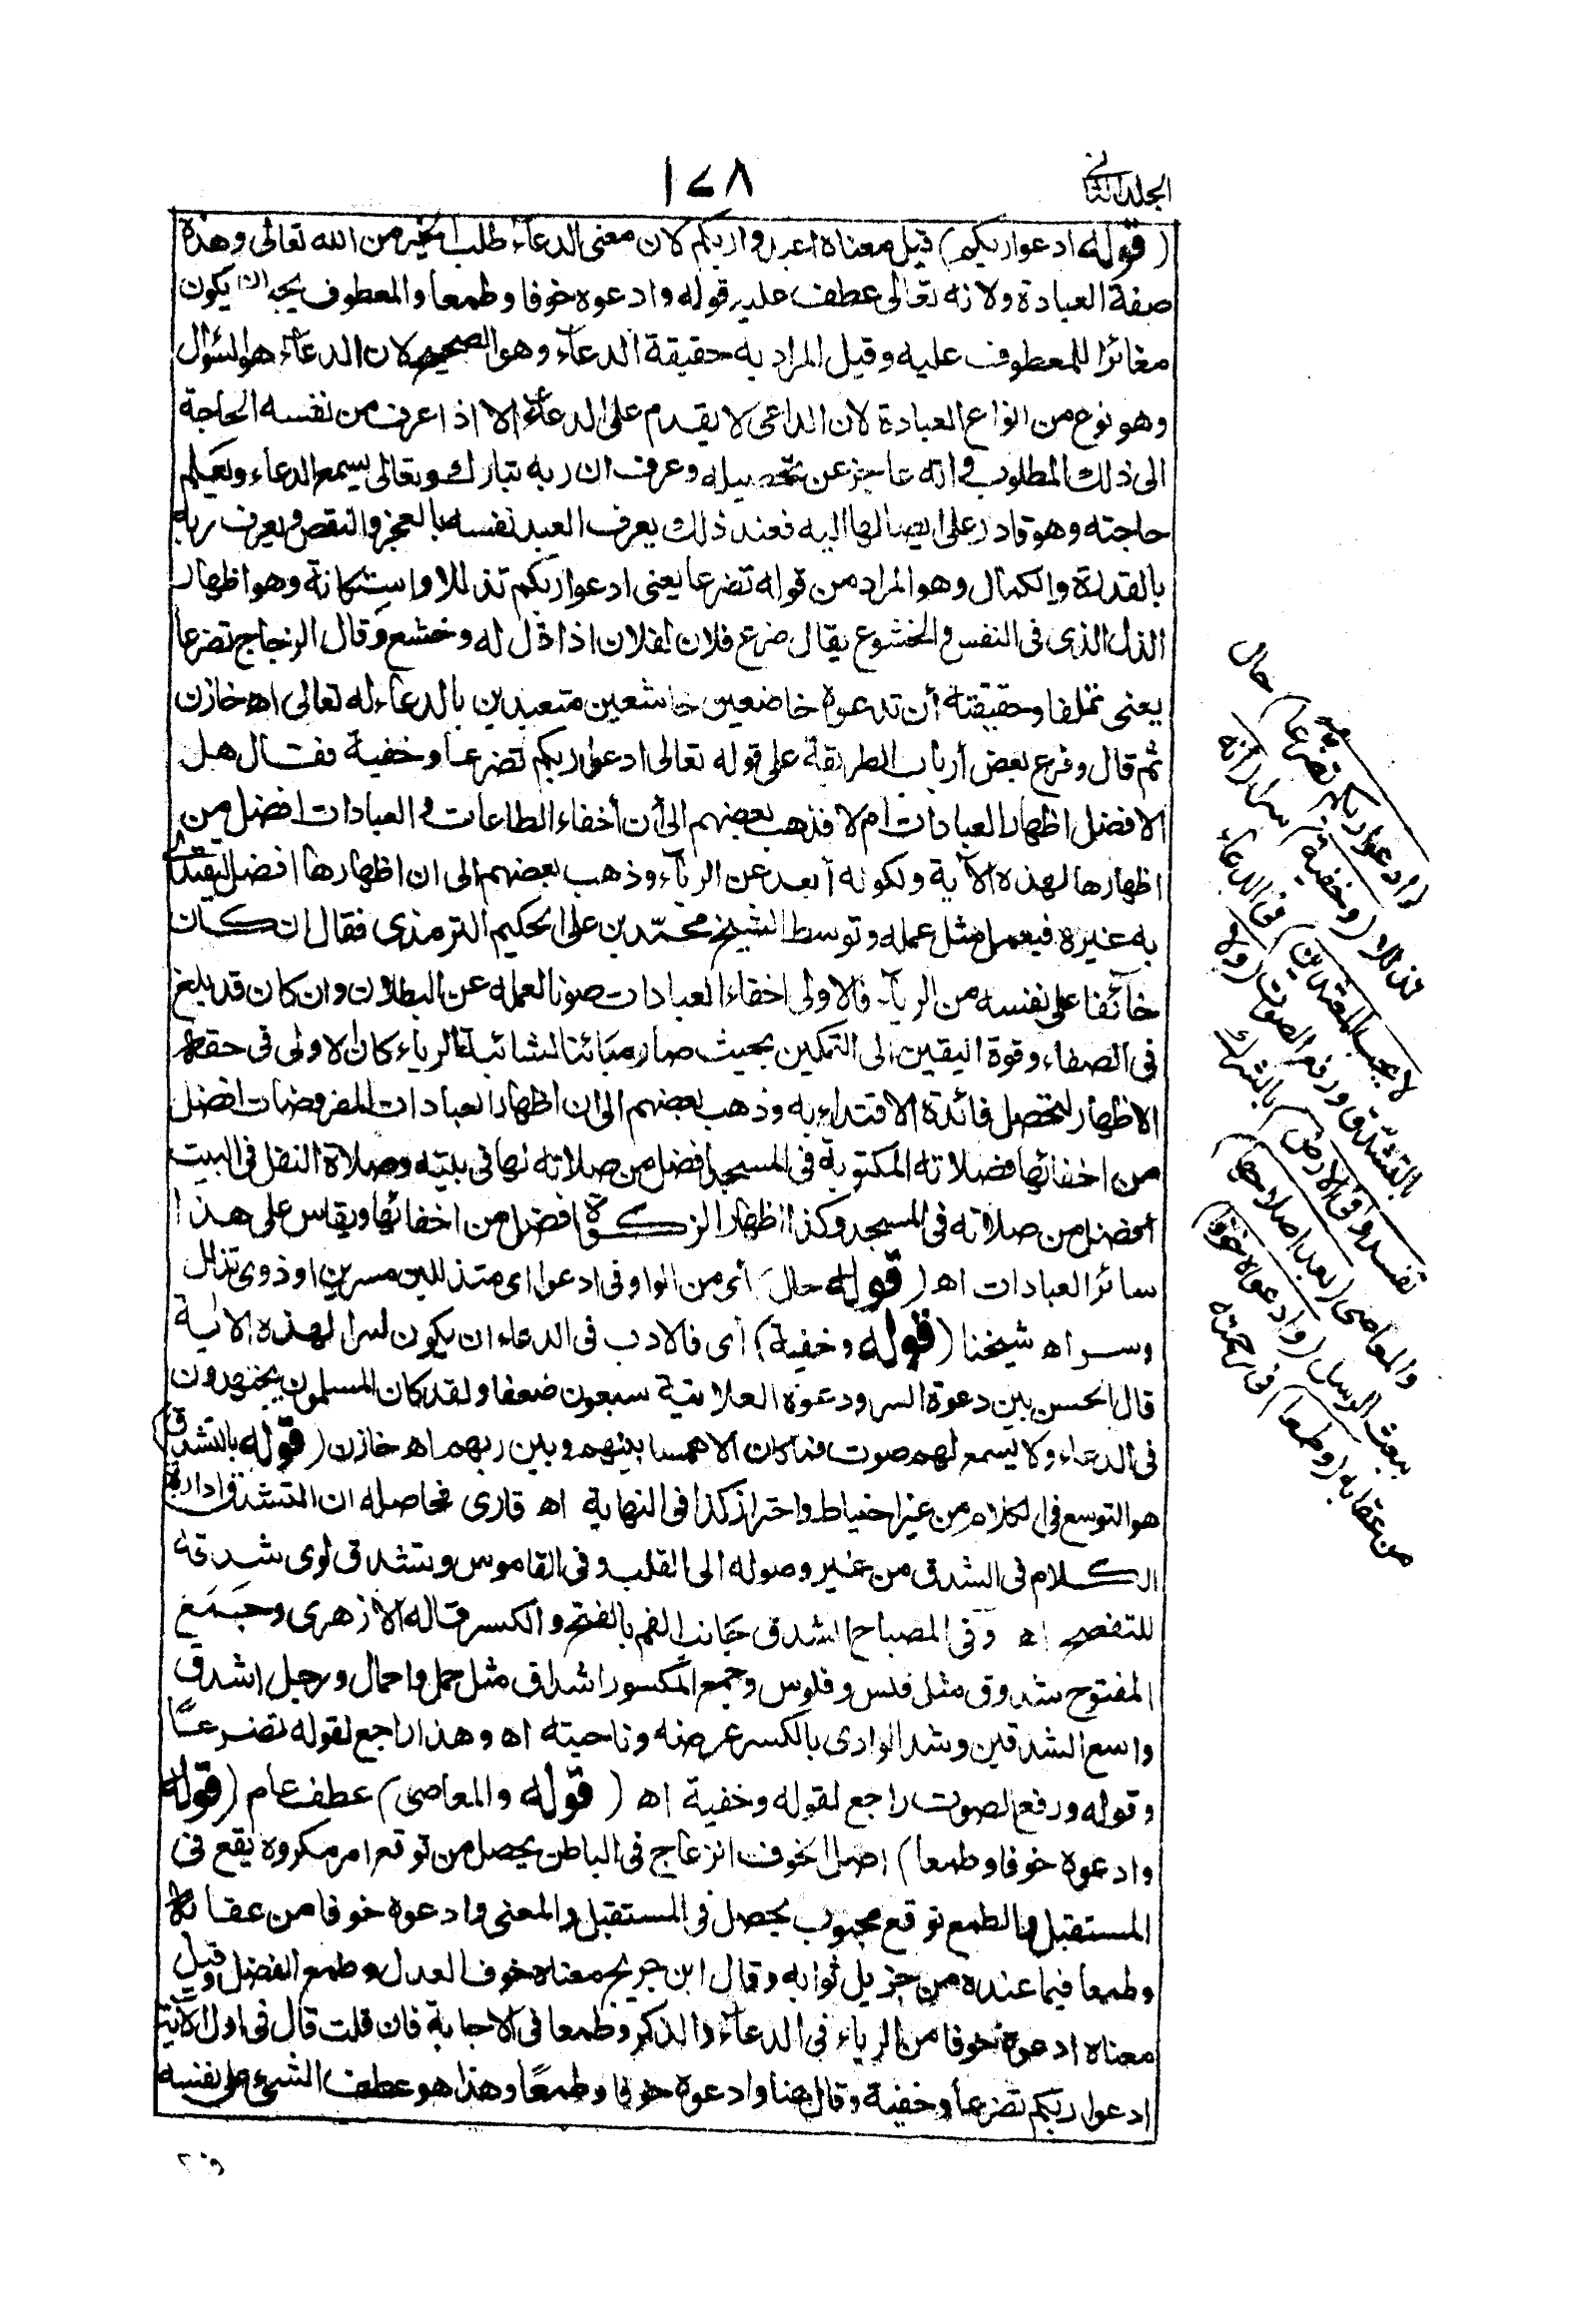 الجلد الثاني
١٧٨
(قوله ادعوا ربكم) قيل معناه اعبدوا ربكم لان معنى الدعاء طلب الخير من الله تعالى وهذه
صفة العبادة ولانه تعالى عطف عليه قوله وادعوه خوفا وطمعا والمعطوف يجب ان يكون
مغائرا للمعطوف عليه وقيل المراد به حقيقة الدعآء وهو الصحيح لان الدعآء هو السؤال
وهو نوع من انواع العبادة لان الداعى لا يقدم على الدعآء الا اذا عرف من نفسه الحاجة
الى ذلك المطلوب وانه عاجز عن تحصيله وعرف ان ربه تبارك وتعالى يسمع الدعاء ويعلم
حاجته وهو قادر على ايصالها اليه فعند ذلك يعرف العبد نفسه بالعجز والنقص ويعرف ربه
بالقدرة والكمال وهو المراد من قوله تضرعا يعنى ادعوا ربكم تذللا واستكانة وهو اظهار
الذل الذى فى النفس والخشوع يقال ضرع فلان لفلان اذا ذل له وخشع وقال الزجاج تضرعا
يعنى تملقا وحقيقته أن تدعوه خاضعين خاشعين متعبدين بالدعاء له تعالى اه خازن
ثم قال وفرع بعض أرباب الطريقة على قوله تعالى ادعوا ربكم تضرعا وخفية فقال هل
الافضل اظهار العبادات ام لا فذهب بعضهم الى أن أخفاء الطاعات والعبادات افضل من
اظهارها لهذه الآية ولكونه أبعد عن الريآء وذهب بعضهم الى ان اظهارها افضل ليقتدى
به غيره فيعمل مثل عمله وتوسط الشيخ محمد بن على الحكيم الترمذى فقال ان كان
خآئفا على نفسه من الريآء فالاولى اخفاء العبادات صونا لعمله عن البطلان وان كان قد بلغ
فى الصفاء وقوة اليقين الى التمكين بحيث صار مبائنا لشائبة الرياء كان الاولى فى حقه
الاظهار لتحصل فائدة الاقتداء به وذهب بعضهم الى ان اظهار العبادات المفروضات افضل
من اخفائها فصلاته المكتوبة فى المسجد افضل من صلاته لها فى بيته وصلاة النفل فى البيت
افضل من صلاته فى المسجد وكذا اظهار الزكوة افضل من اخفائها ويقاس على هذا
سائر العبادات اه (قوله حال) أى من الواو فى ادعوا اى متذللين مسرين او ذوى تذلل
وسر اه شيخنا (قوله وخفية) أى فالادب فى الدعاء ان يكون لسرا لهذه الاية
قال الحسن بين دعوة السر ودعوة العلانية سبعون ضعفا ولقد كان المسلمون يجتهدون
فى الدعاء ولا يسمع لهم صوت فما كان الا همسا بينهم وبين ربهم اه خازن (قوله بالتشدق)
هو التوسع فى الكلام من غير احتياط واحتراز كذا فى النهاية اه قارى فحاصله ان التشدق ادارة
الكلام فى الشدق من غير وصوله الى القلب وفى القاموس وتشدق لوى شدقه
للتفصح اه وفى المصباح الشدق جانب الفم بالفتح والكسر قاله الازهرى وجمع
المفتوح شدوق مثل فلس وفلوس وجمع المكسور اشداق مثل حمل واحمال ورجل اشدق
واسع الشدقين وشدق الوادى بالكسر عرضه وناحيته اه وهذا راجع لقوله تضرعًا
وقوله ورفع الصوت راجع لقوله وخفية اه (قوله والمعاصى) عطف عام (قوله
وادعوه خوفا وطمعا) اصل الخوف انزعاج فى الباطن يحصل من توقع امر مكروه يقع فى
المستقبل والطمع توقع محبوب يحصل فى المستقبل والمعنى وادعوه خوفا من عقابه
وطمعا فيما عنده من جزيل ثوابه وقال ابن جريج معناه خوف العدل وطمع الفضل وقيل
معناه ادعوه خوفا من الرياء فى الدعآء والذكر وطمعا فى الاجابة فان قلت قال فى اول الآية
ادعوا ربكم تضرعا وخفية وقال هنا وادعوه خوفا وطمعًا وهذا هو عطف الشىء على نفسه
(ادعوا ربكم تضرعا) حال
تذللا (وخفية) سرا (انه
لا يحب المعتدين) فى الدعآء
بالتشدق ورفع الصوت (ولا
تفسدوا فى الارض) بالشرك
والمعاصى (بعد اصلاحها)
ببعث الرسل (وادعوه خوفا)
من عقابه (وطمعا) فى رحمته